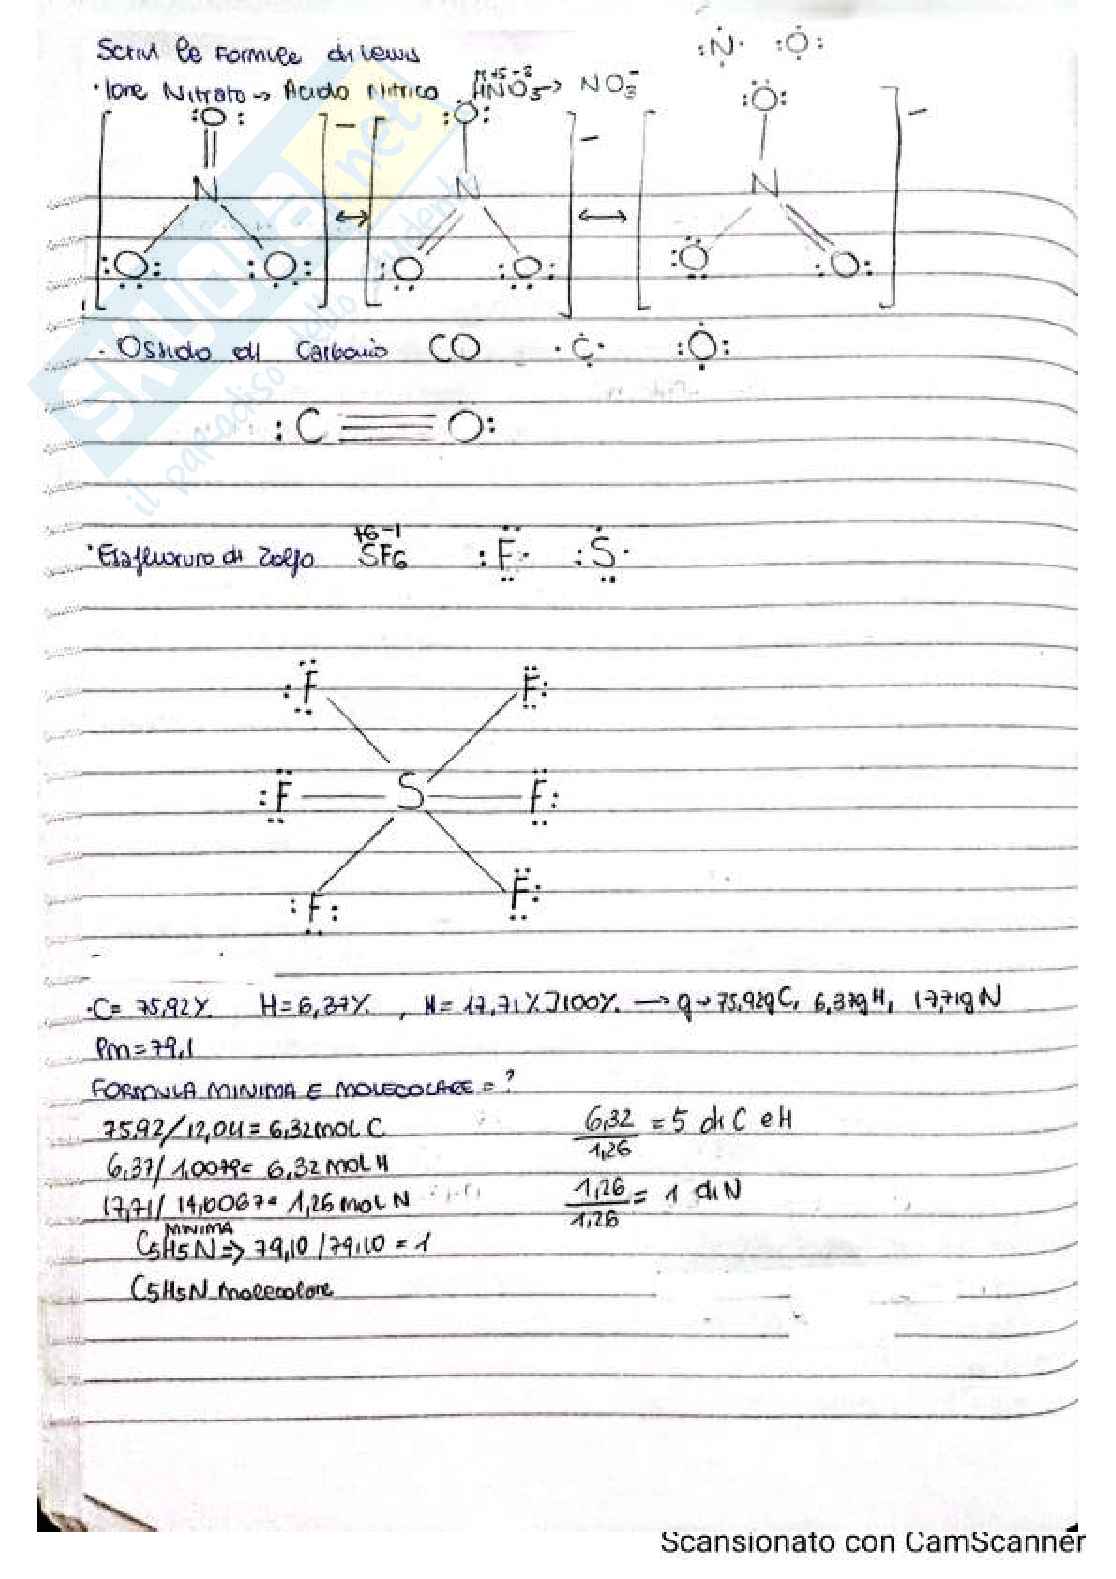 Scrivi le Formule di Lewis
:N· :O:
·Ione Nitrato → Acido Nitrico HNO3 → NO3-
+1 +5 -2
:O: - :O: - :O: -
N ↔ N ↔ N
:O: :O: :O: :O: :O: :O:
· Ossido di Carbonio CO ·C· :O:
:C≡O:
+6 -1
·Esafluoruro di Zolfo SF6 :F· :S·
:F F:
:F — S — F:
:F: F:
·C= 75,92% H=6,37%, N= 17,71% ]100% → g → 75,92gC, 6,37gH, 17,71gN
Pm=79,1
FORMULA MINIMA E MOLECOLARE = ?
75,92/12,011= 6,32mol C 6,32/1,26 = 5 di C e H
6,37/1,0079= 6,32 mol H
17,71/ 14,0067= 1,26 mol N 1,26/1,26 = 1 di N
MINIMA
C5H5N => 79,10/79,10 = 1
C5H5N molecolare
skuola.net
il paradiso dello studente
Scansionato con CamScanner